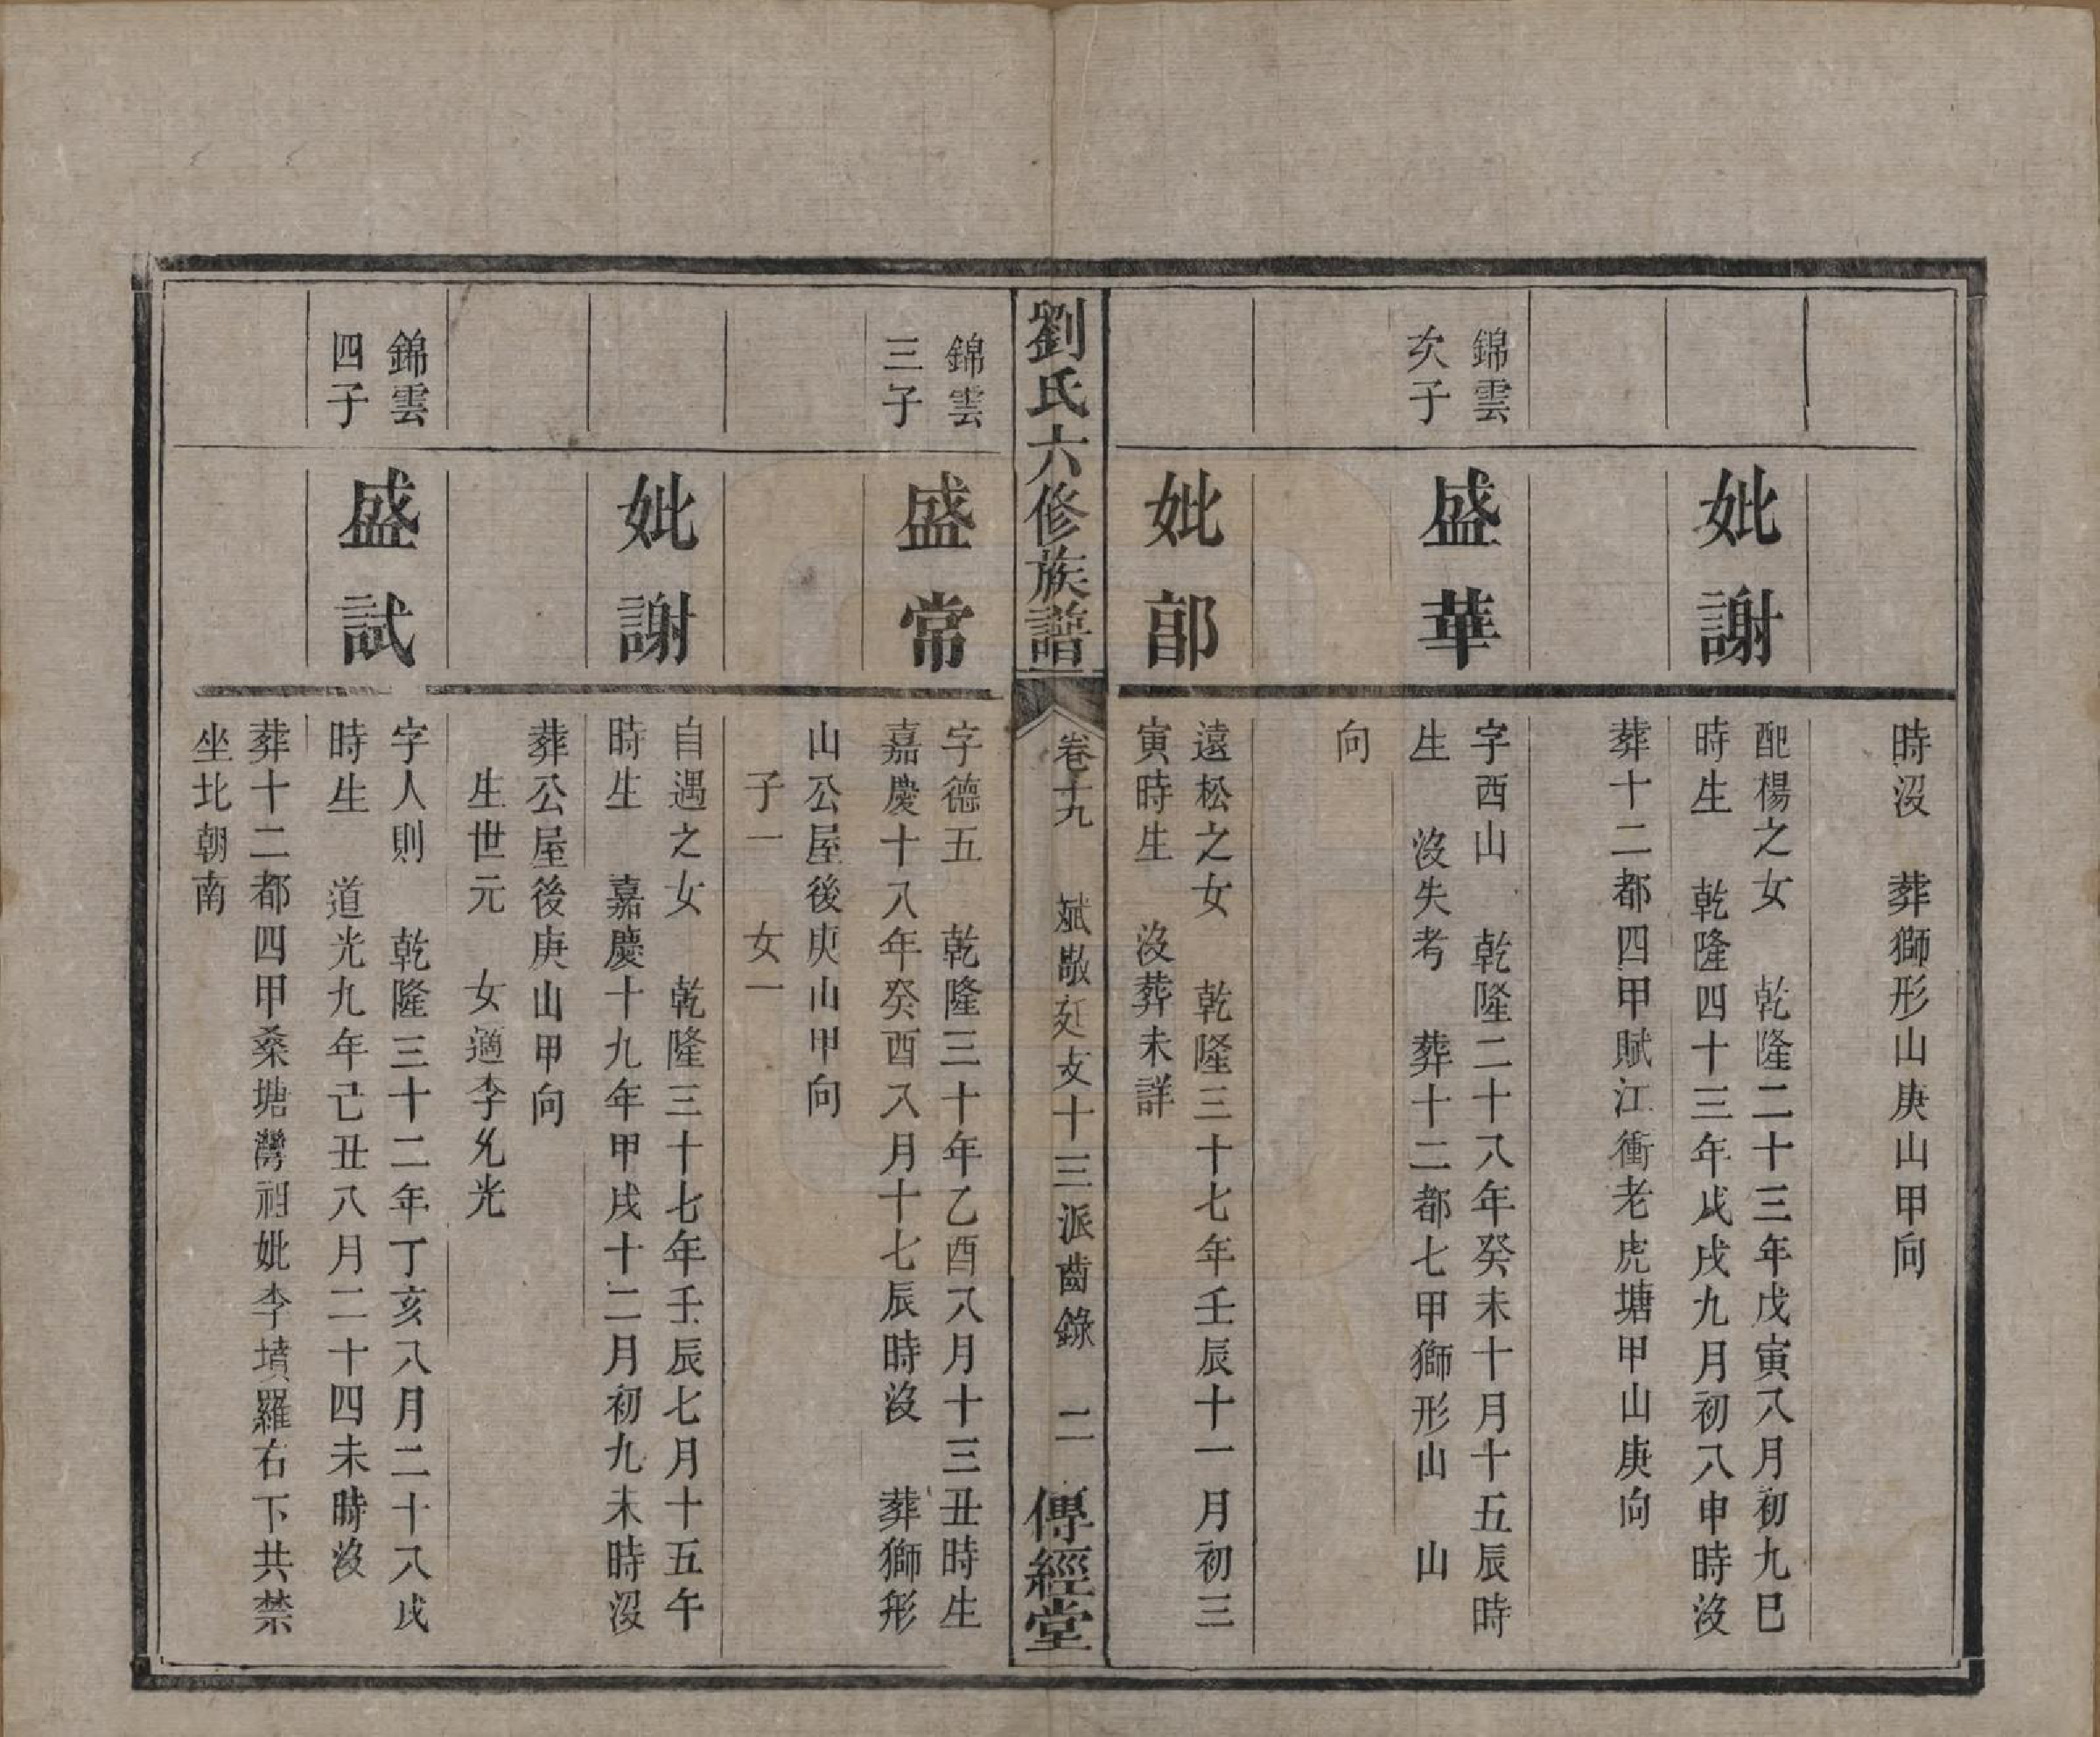 時沒　葬獅形山庚山甲向
妣謝
配楊之女　乾隆二十三年戊寅八月初九巳
時生　乾隆四十三年戊戌九月初八申時沒
葬十二都四甲賦江衝老虎塘甲山庚向
錦雲
次子
盛華
字西山　乾隆二十八年癸未十月十五辰時
生　沒失考　葬十二都七甲獅形山　山
向
妣郭
遠松之女　乾隆三十七年壬辰十一月初三
寅時生　沒葬未詳
劉氏六修族譜
卷十九　斌敬廷友十三派齒錄　二
傳經堂
錦雲
三子
盛常
字德五　乾隆三十年乙酉八月十三丑時生
嘉慶十八年癸酉八月十七辰時沒　葬獅形
山公屋後庚山甲向
子一　女一
妣謝
自遇之女　乾隆三十七年壬辰七月十五午
時生　嘉慶十九年甲戌十二月初九未時沒
葬公屋後庚山甲向
生世元　女適李允光
錦雲
四子
盛試
字人則　乾隆三十二年丁亥八月二十八戌
時生　道光九年己丑八月二十四未時沒
葬十二都四甲桑塘灣祖妣李墳羅右下共禁
坐北朝南